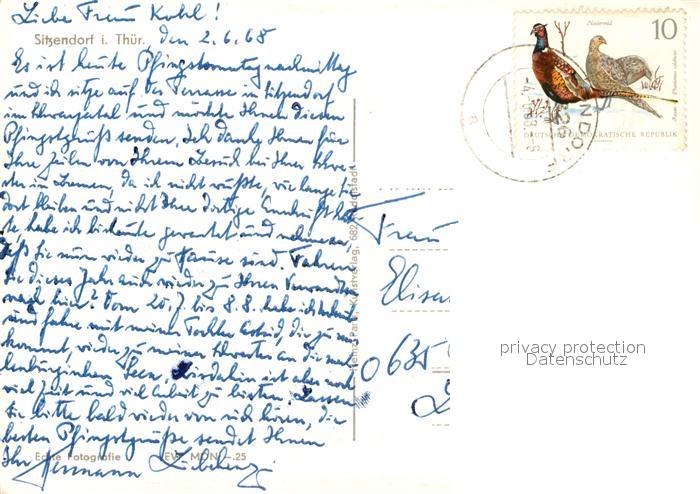 Liebe Frau Kohl!
Sitzendorf i. Thür. den 2.6.68
Es ist heute Pfingstsonntagnachmittag
und ich sitze auf der Terrasse in Sitzendorf
im Schwarzatal und möchte Ihnen diesen
Pfingstgruß senden. Ich danke Ihnen für
Ihre Zeilen von Ihrem Besuch bei Ihrer Schwe-
ster in Bremen, da ich nicht wußte, wie lange Sie
dort bleiben und nicht Ihre dortige Anschrift hat-
te, habe ich bis heute gewartet und nehme an,
daß Sie nun wieder zu Hause sind. Fahren
Sie dieses Jahr auch wieder zu Ihren Verwandten
nach hier? Vom 20.7 bis 8.8. habe ich Urlaub
und fahre mit meiner Tochter Astrid, die zu mir
kommt, wieder zu meiner Schwester an die meck-
lenburgischen Seen, bis dahin ist aber noch
viel Zeit und viel Arbeit zu leisten. Lassen
Sie bitte bald wieder von sich hören, die
besten Pfingstgrüße sendet Ihnen
Ihr Hermann
Echte Fotografie EVP MDN -.25
Kunstverlag, 682 Rudolstadt
Frau
Elisa
0635
Niederwild
10
DEUTSCHE DEMOKRATISCHE REPUBLIK
privacy protection
Datenschutz